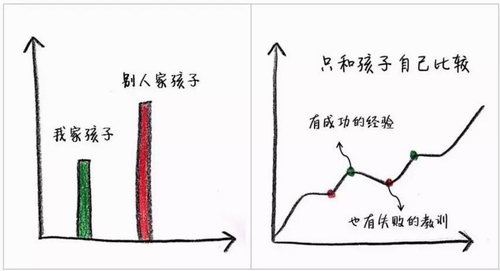 别人家孩子
我家孩子
只和孩子自己比较
有成功的经验
也有失败的教训